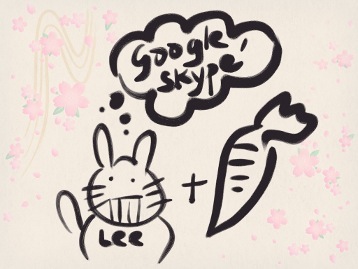 Google'
skype
+
LEE